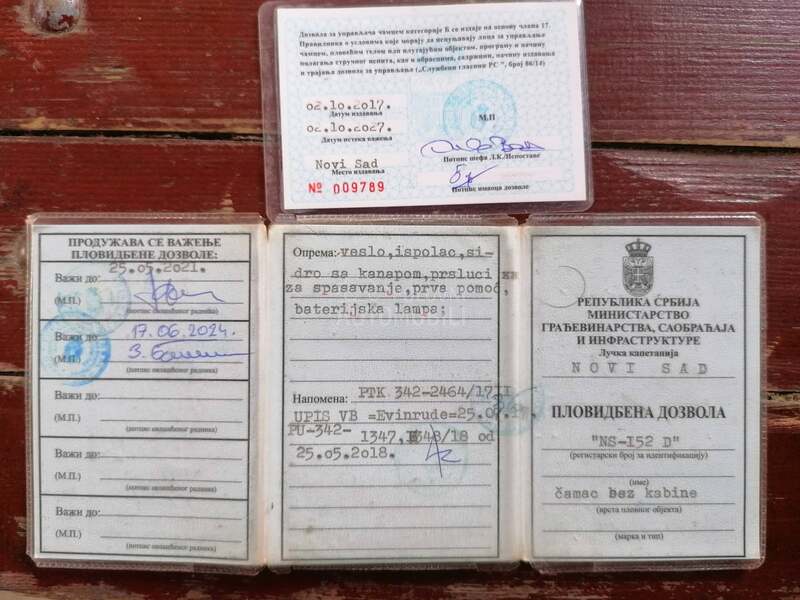 Дозвола за управљача чамцем категорије Б се издаје на основу члана 17.
Правилника о условима које морају да испуњавају лица за управљање
чамцем, пловећим телом или плутајућим објектом, програму и начину
полагања стручног испита, као и обрасцима, садржини, начину издавања
и трајања дозволе за управљање („Службени гласник РС ", број 86/14)
02.10.2017.
Датум издавања
02.10.2027.
Датум истека важења
М.П
Novi Sad
Место издавања
Потпис шефа Л.К./Испоставе
№ 009789
Потпис имаоца дозволе
ПРОДУЖАВА СЕ ВАЖЕЊЕ
ПЛОВИДБЕНЕ ДОЗВОЛЕ:
Важи до: 25.05.2021.
(М.П.)
(потпис овлашћеног радника)
Важи до: 17.06.2024.
(М.П.)
(потпис овлашћеног радника)
Важи до:
(М.П.)
(потпис овлашћеног радника)
Важи до:
(М.П.)
(потпис овлашћеног радника)
Важи до:
(М.П.)
(потпис овлашћеног радника)
Опрема: veslo,ispolac,si-
dro sa kanapom,prsluci
za spasavanje,prva pomoć,
baterijska lampa;
Напомена: PTK 342-2464/17II
UPIS VB =Evinrude=25.07.
PU-342-
1347,1348/18 od
25.05.2018.
РЕПУБЛИКА СРБИЈА
МИНИСТАРСТВО
ГРАЂЕВИНАРСТВА, САОБРАЋАЈА
И ИНФРАСТРУКТУРЕ
Лучка капетанија
NOVI SAD
ПЛОВИДБЕНА ДОЗВОЛА
"NS-152 D"
(регистарски број за идентификацију)
(име)
čamac bez kabine
(врста пловног објекта)
(марка и тип)